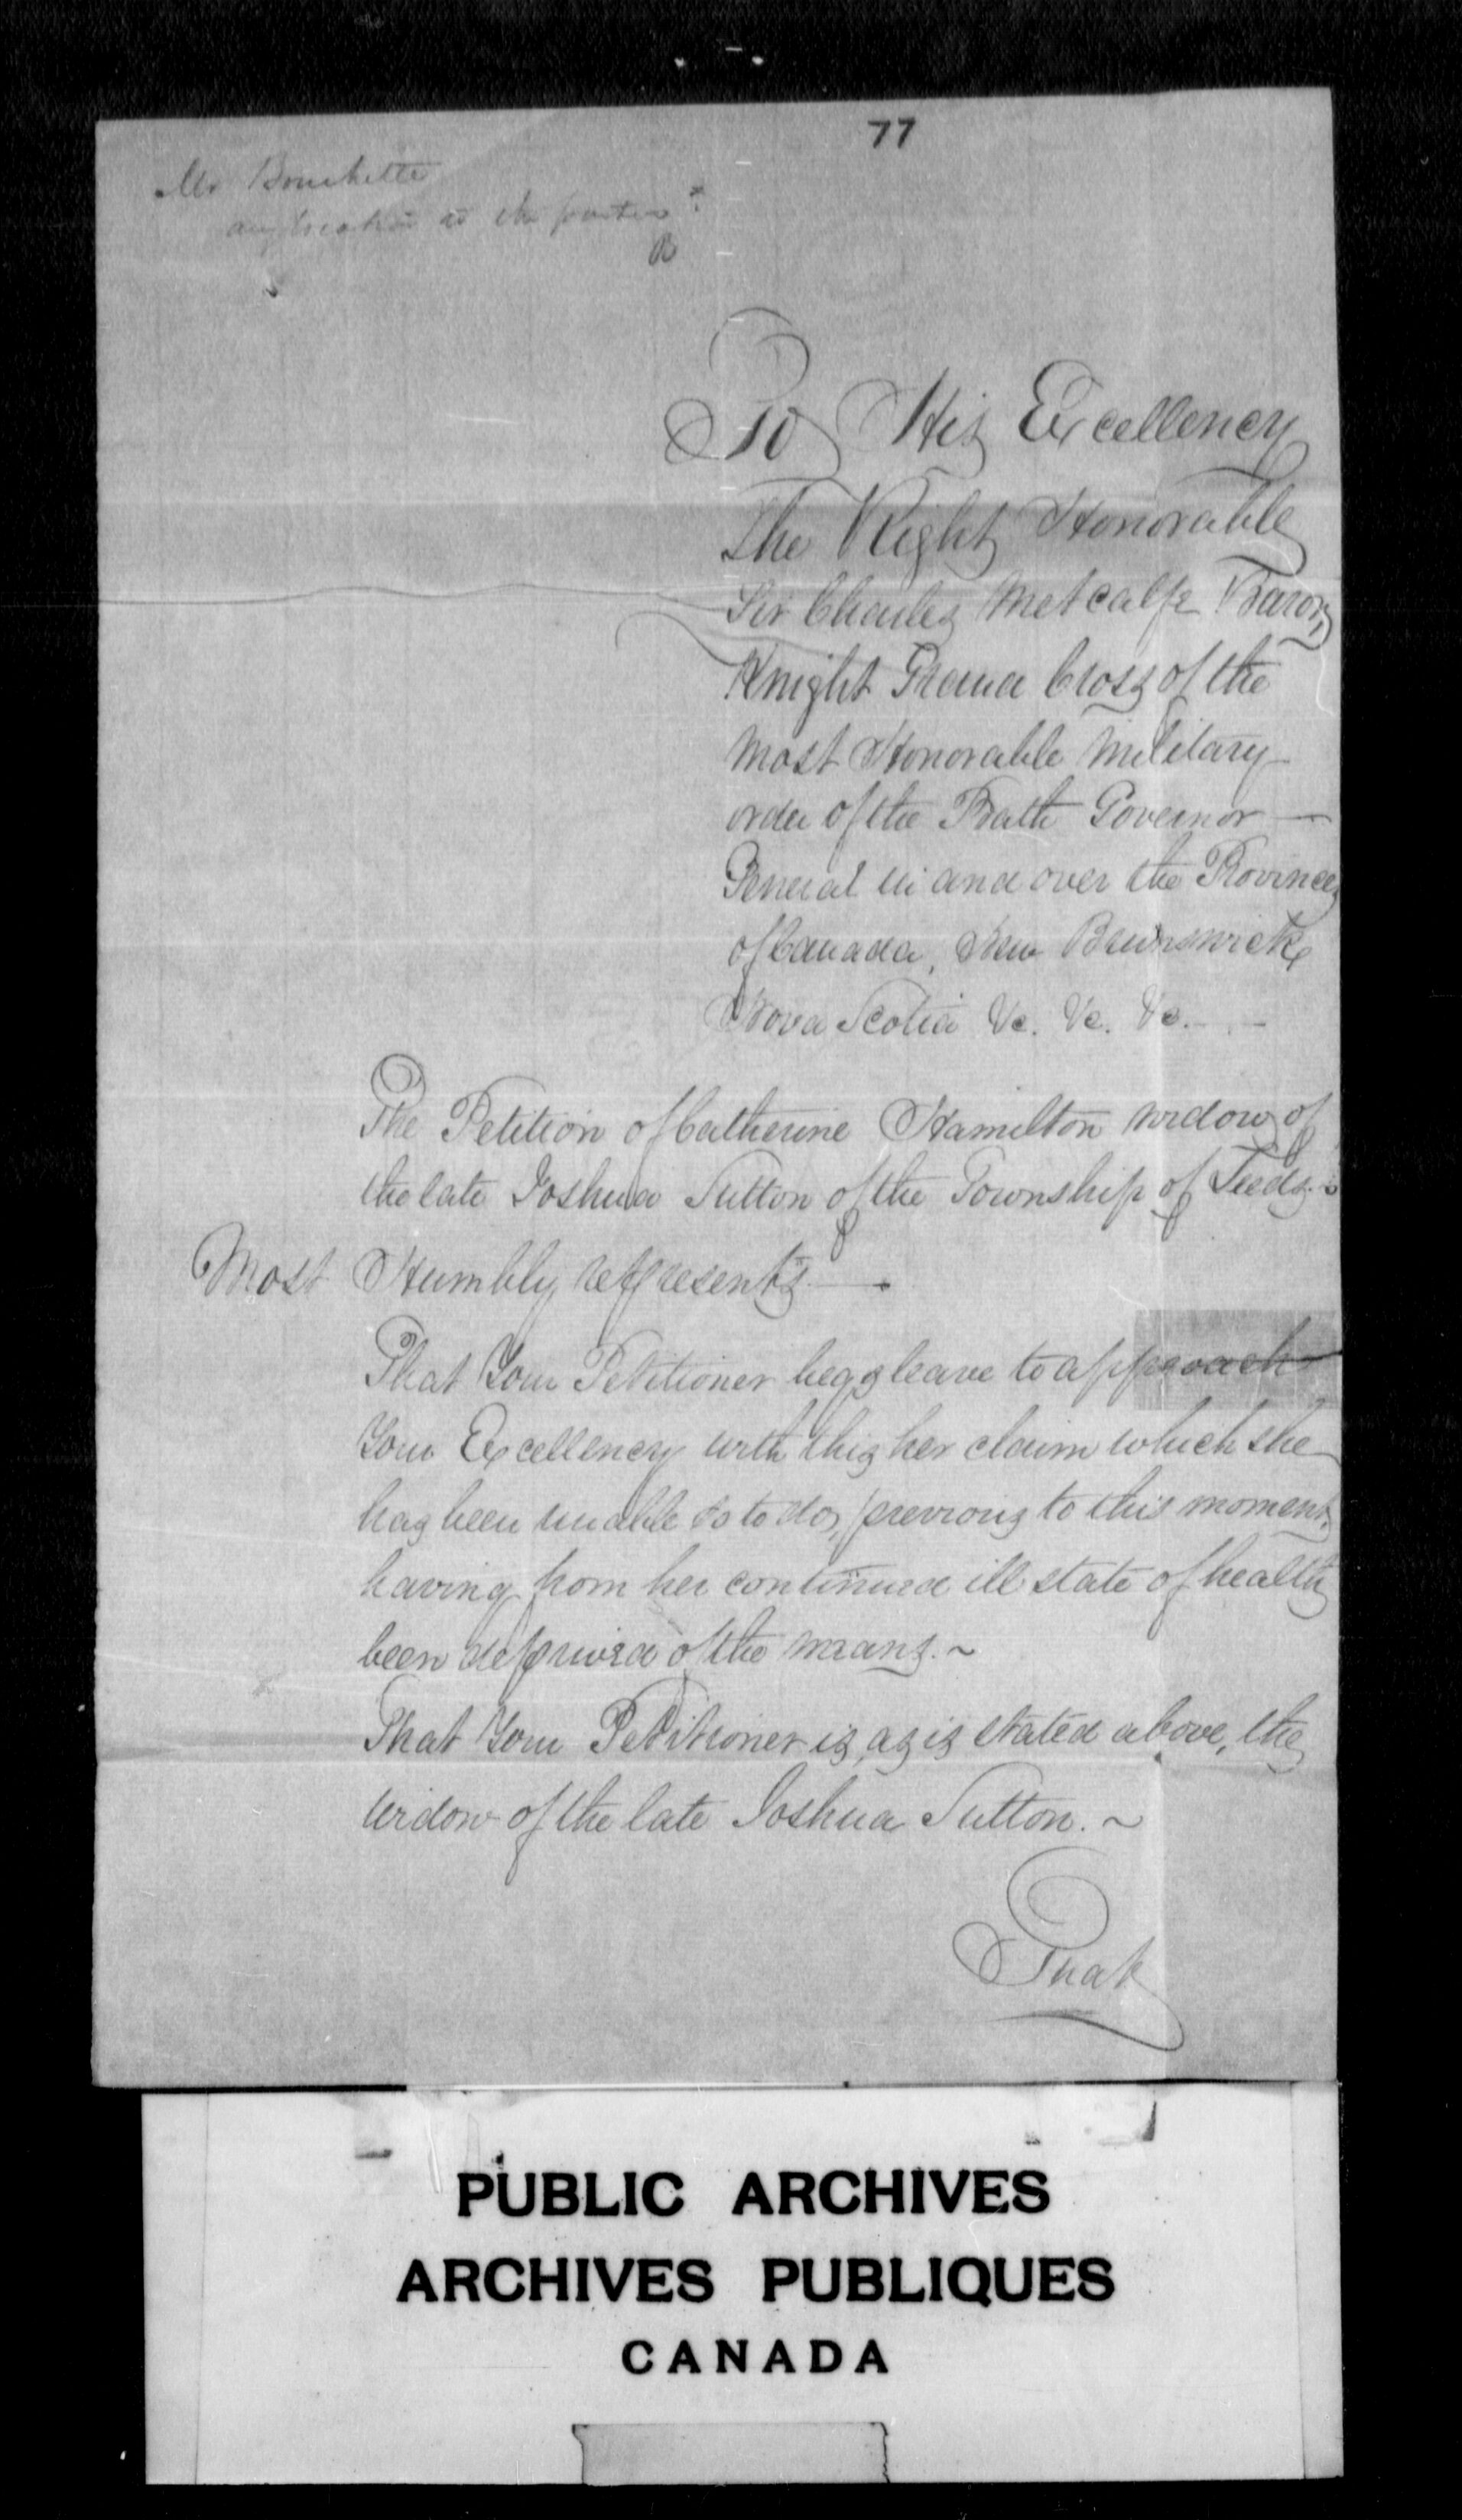 77
Mr Bouchette
any location to the parties?
R
To His Excellency
The Right Honorable
Sir Charles Metcalfe Baron,
Knight Grand Cross of the
Most Honorable Military
order of the Bath Governor —
General in and over the Provinces
of Canada, New Brunswick,
Nova Scotia &c. &c. &c. —
The Petition of Catherine Hamilton widow of
the late Joshua Sutton of the Township of Leeds. ~
Most Humbly represents — .
That Your Petitioner begs leave to approach
Your Excellency with this her claim which she
has been unable so to do, previous to this moment,
having from her continued ill state of health
been deprived of the means. ~
That Your Petitioner is, as is stated above, the
widow of the late Joshua Sutton. ~
That
PUBLIC ARCHIVES
ARCHIVES PUBLIQUES
CANADA